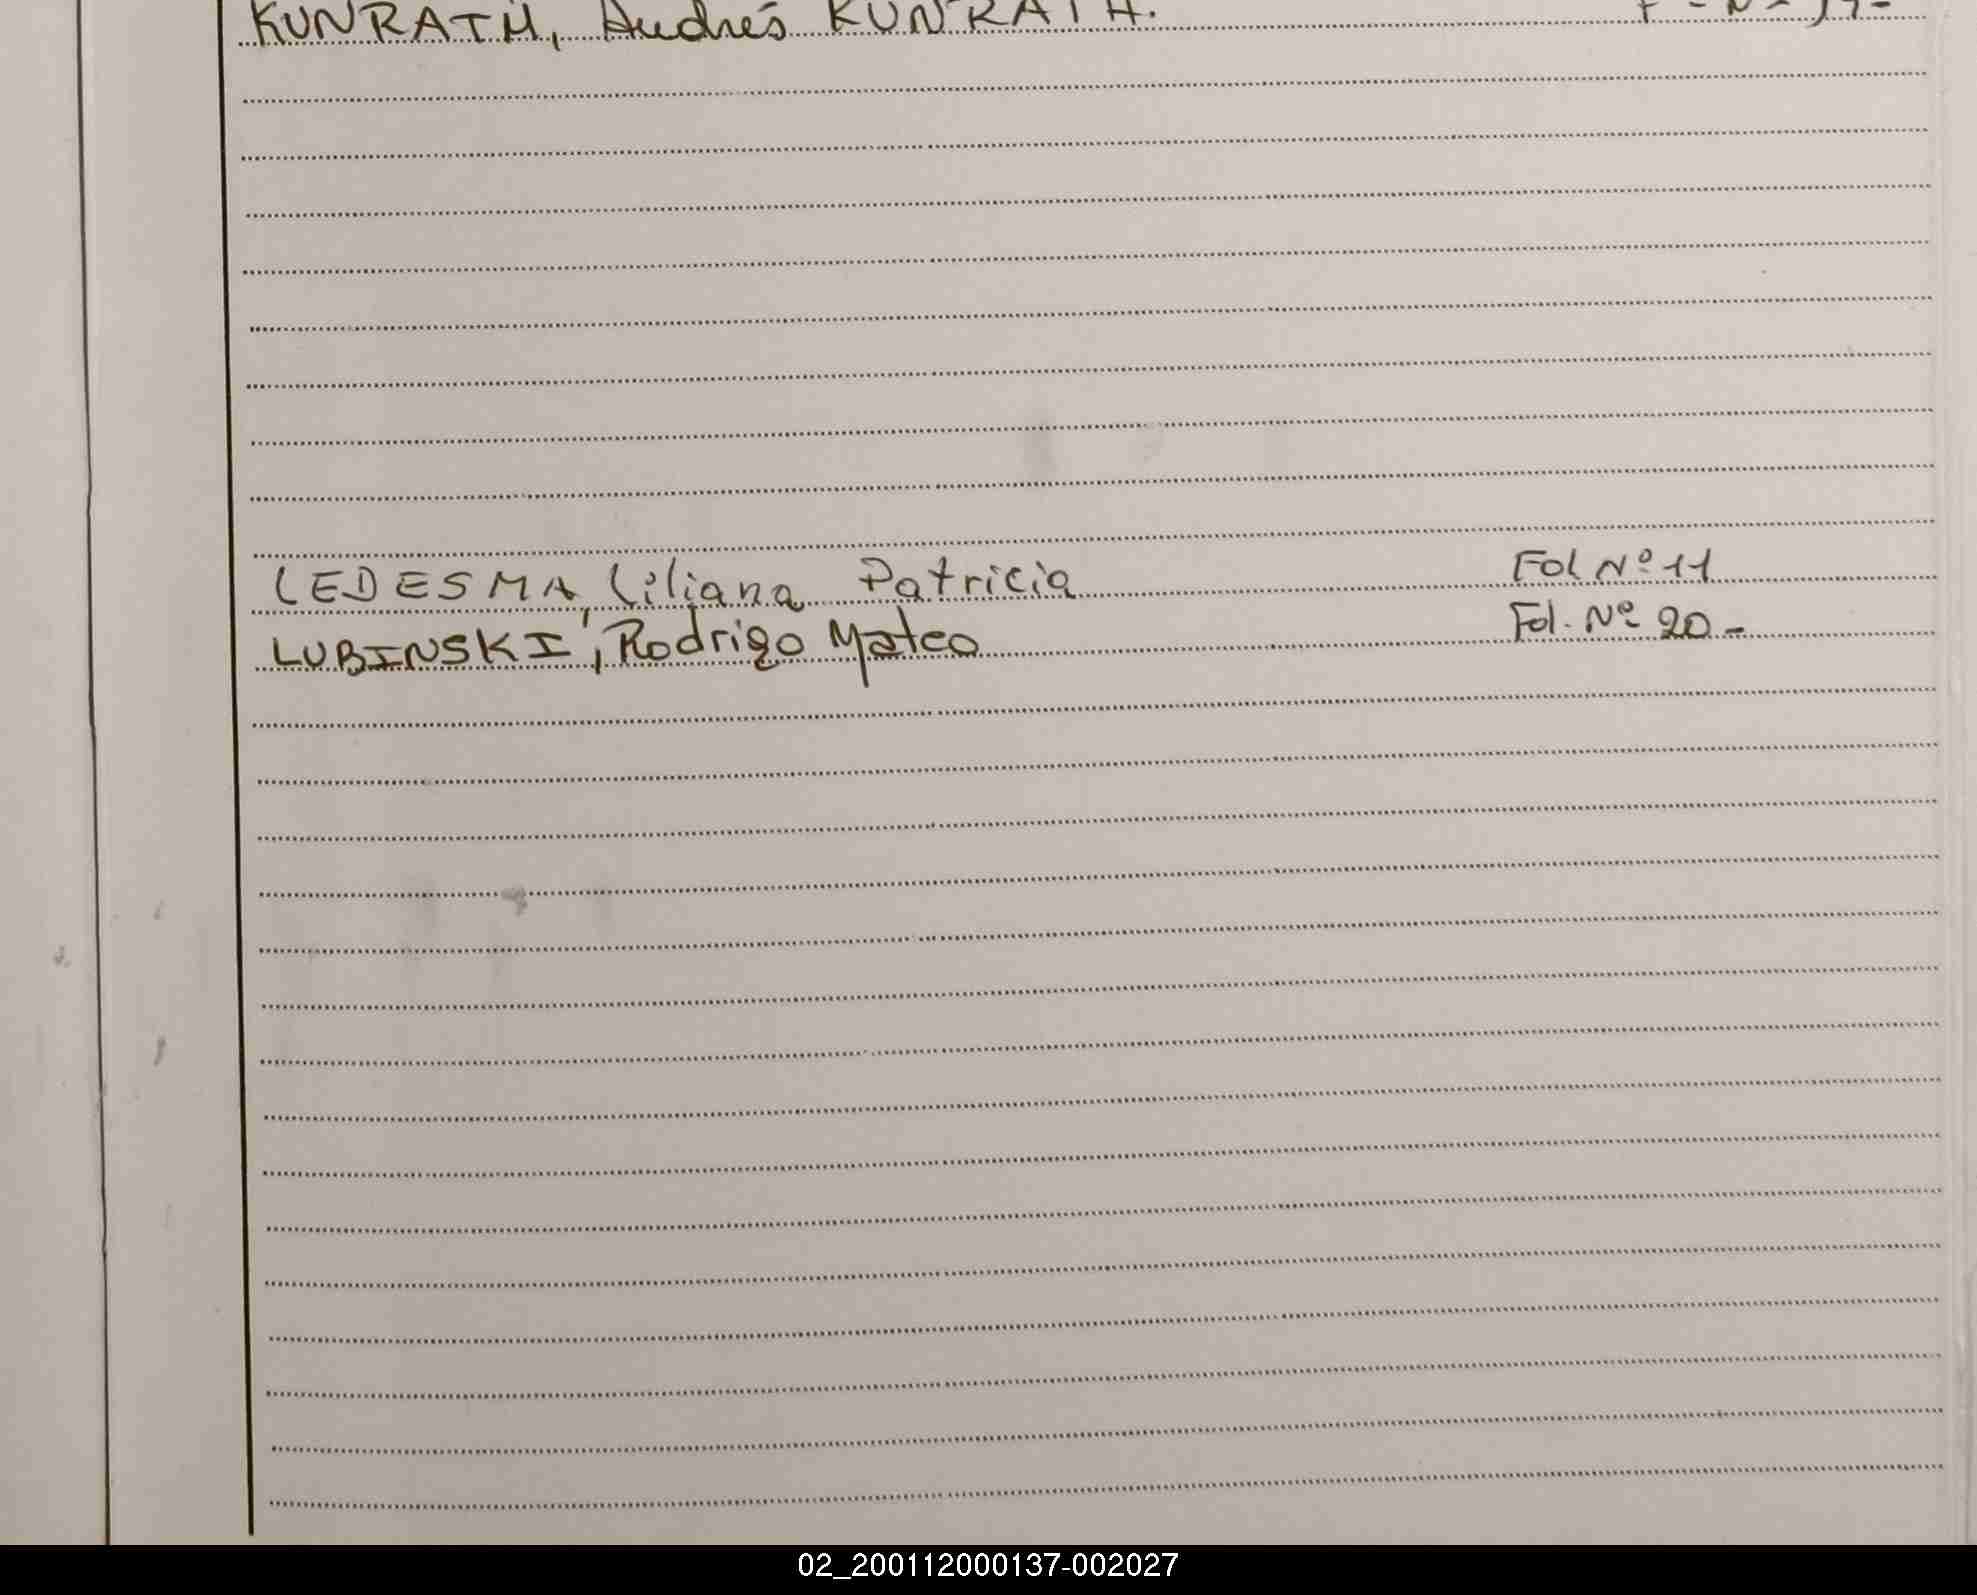 KUNRATH, Andrés KUNRATH.
LEDESMA, Liliana Patricia Fol Nº 11
LUBINSKI, Rodrigo Mateo Fol. Nº 20 -
02_200112000137-002027